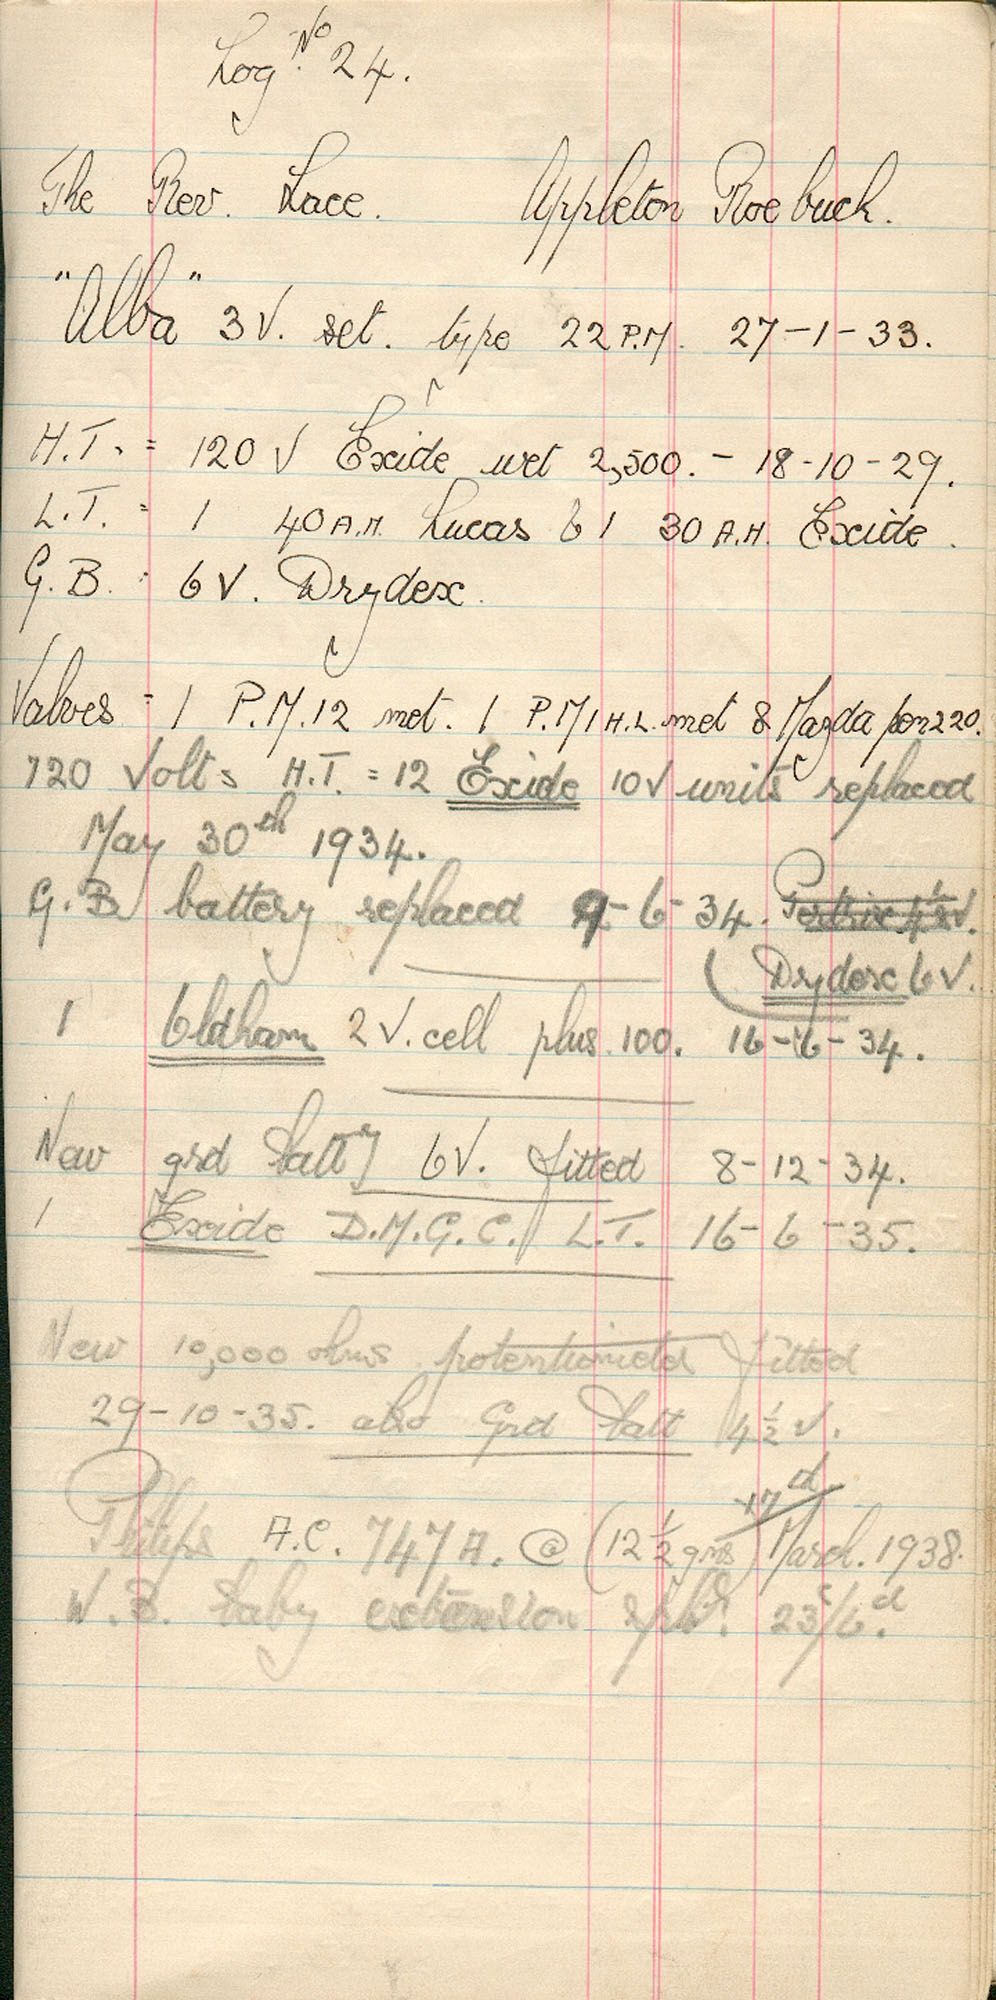 Log No 24.
The Rev. Lace. Appleton Roebuck.
"Alba" 3 V. set. type 22 P.M. 27-1-33.
H.T. = 120 V Exide wet 2,500. - 18-10-29.
L.T. = 1 40 A.H. Lucas & 1 30 A.H. Exide.
G.B. : 6 V. Drydex.
Valves = 1 P.M.12 met. 1 P.M1 H.L. met & Mazda pen 220.
120 Volts H.T. = 12 Exide 10 V units replaced
May 30th 1934.
G.B battery replaced 9-6-34. Pertrix 4½V.
Drydex 6V.
1 Oldham 2 V. cell plus 100. 16-6-34.
New grd Batty 6V. fitted 8-12-34.
1 Exide D.M.G.C. L.T. 16-6-35.
New 10,000 ohms fitted
29-10-35. also Grd Batt 4½ V.
Philips A.C. 747 A. @ (12½ gns) 17d March. 1938.
W.B. Baby extension spkr. 23s/6d.